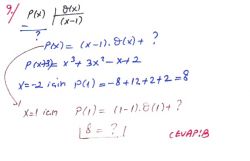 9/ P(x) | Q(x)
(x-1)
?
P(x) = (x-1).Q(x) + ?
P(x+3) = x³ + 3x² - x + 2
x=-2 için P(1) = -8+12+2+2 = 8
x=1 için P(1) = (1-1).Q(1) + ?
8 = ?
CEVAP:B